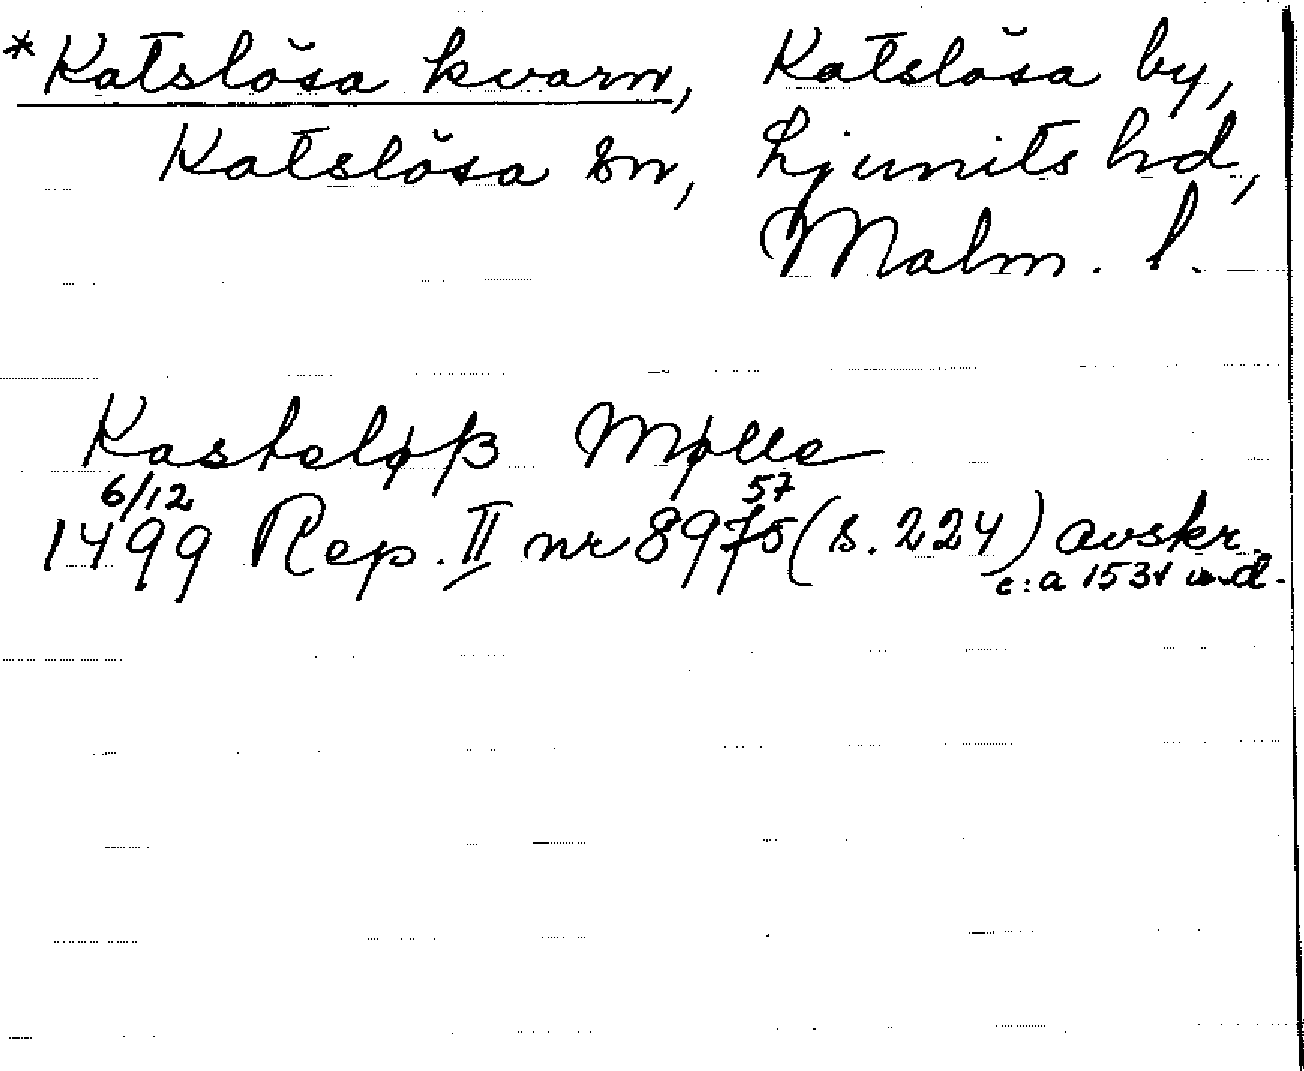 *Katslösa kvarn, Katslösa by,
Katslösa sn, Ljunits hd,
Malm. l.
Kasteløß Mølle
6/12 57
1499 Rep. II nr 8975 (s. 224) avskr.
c:a 1534 u.d.